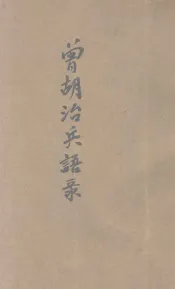 曾胡治兵語录